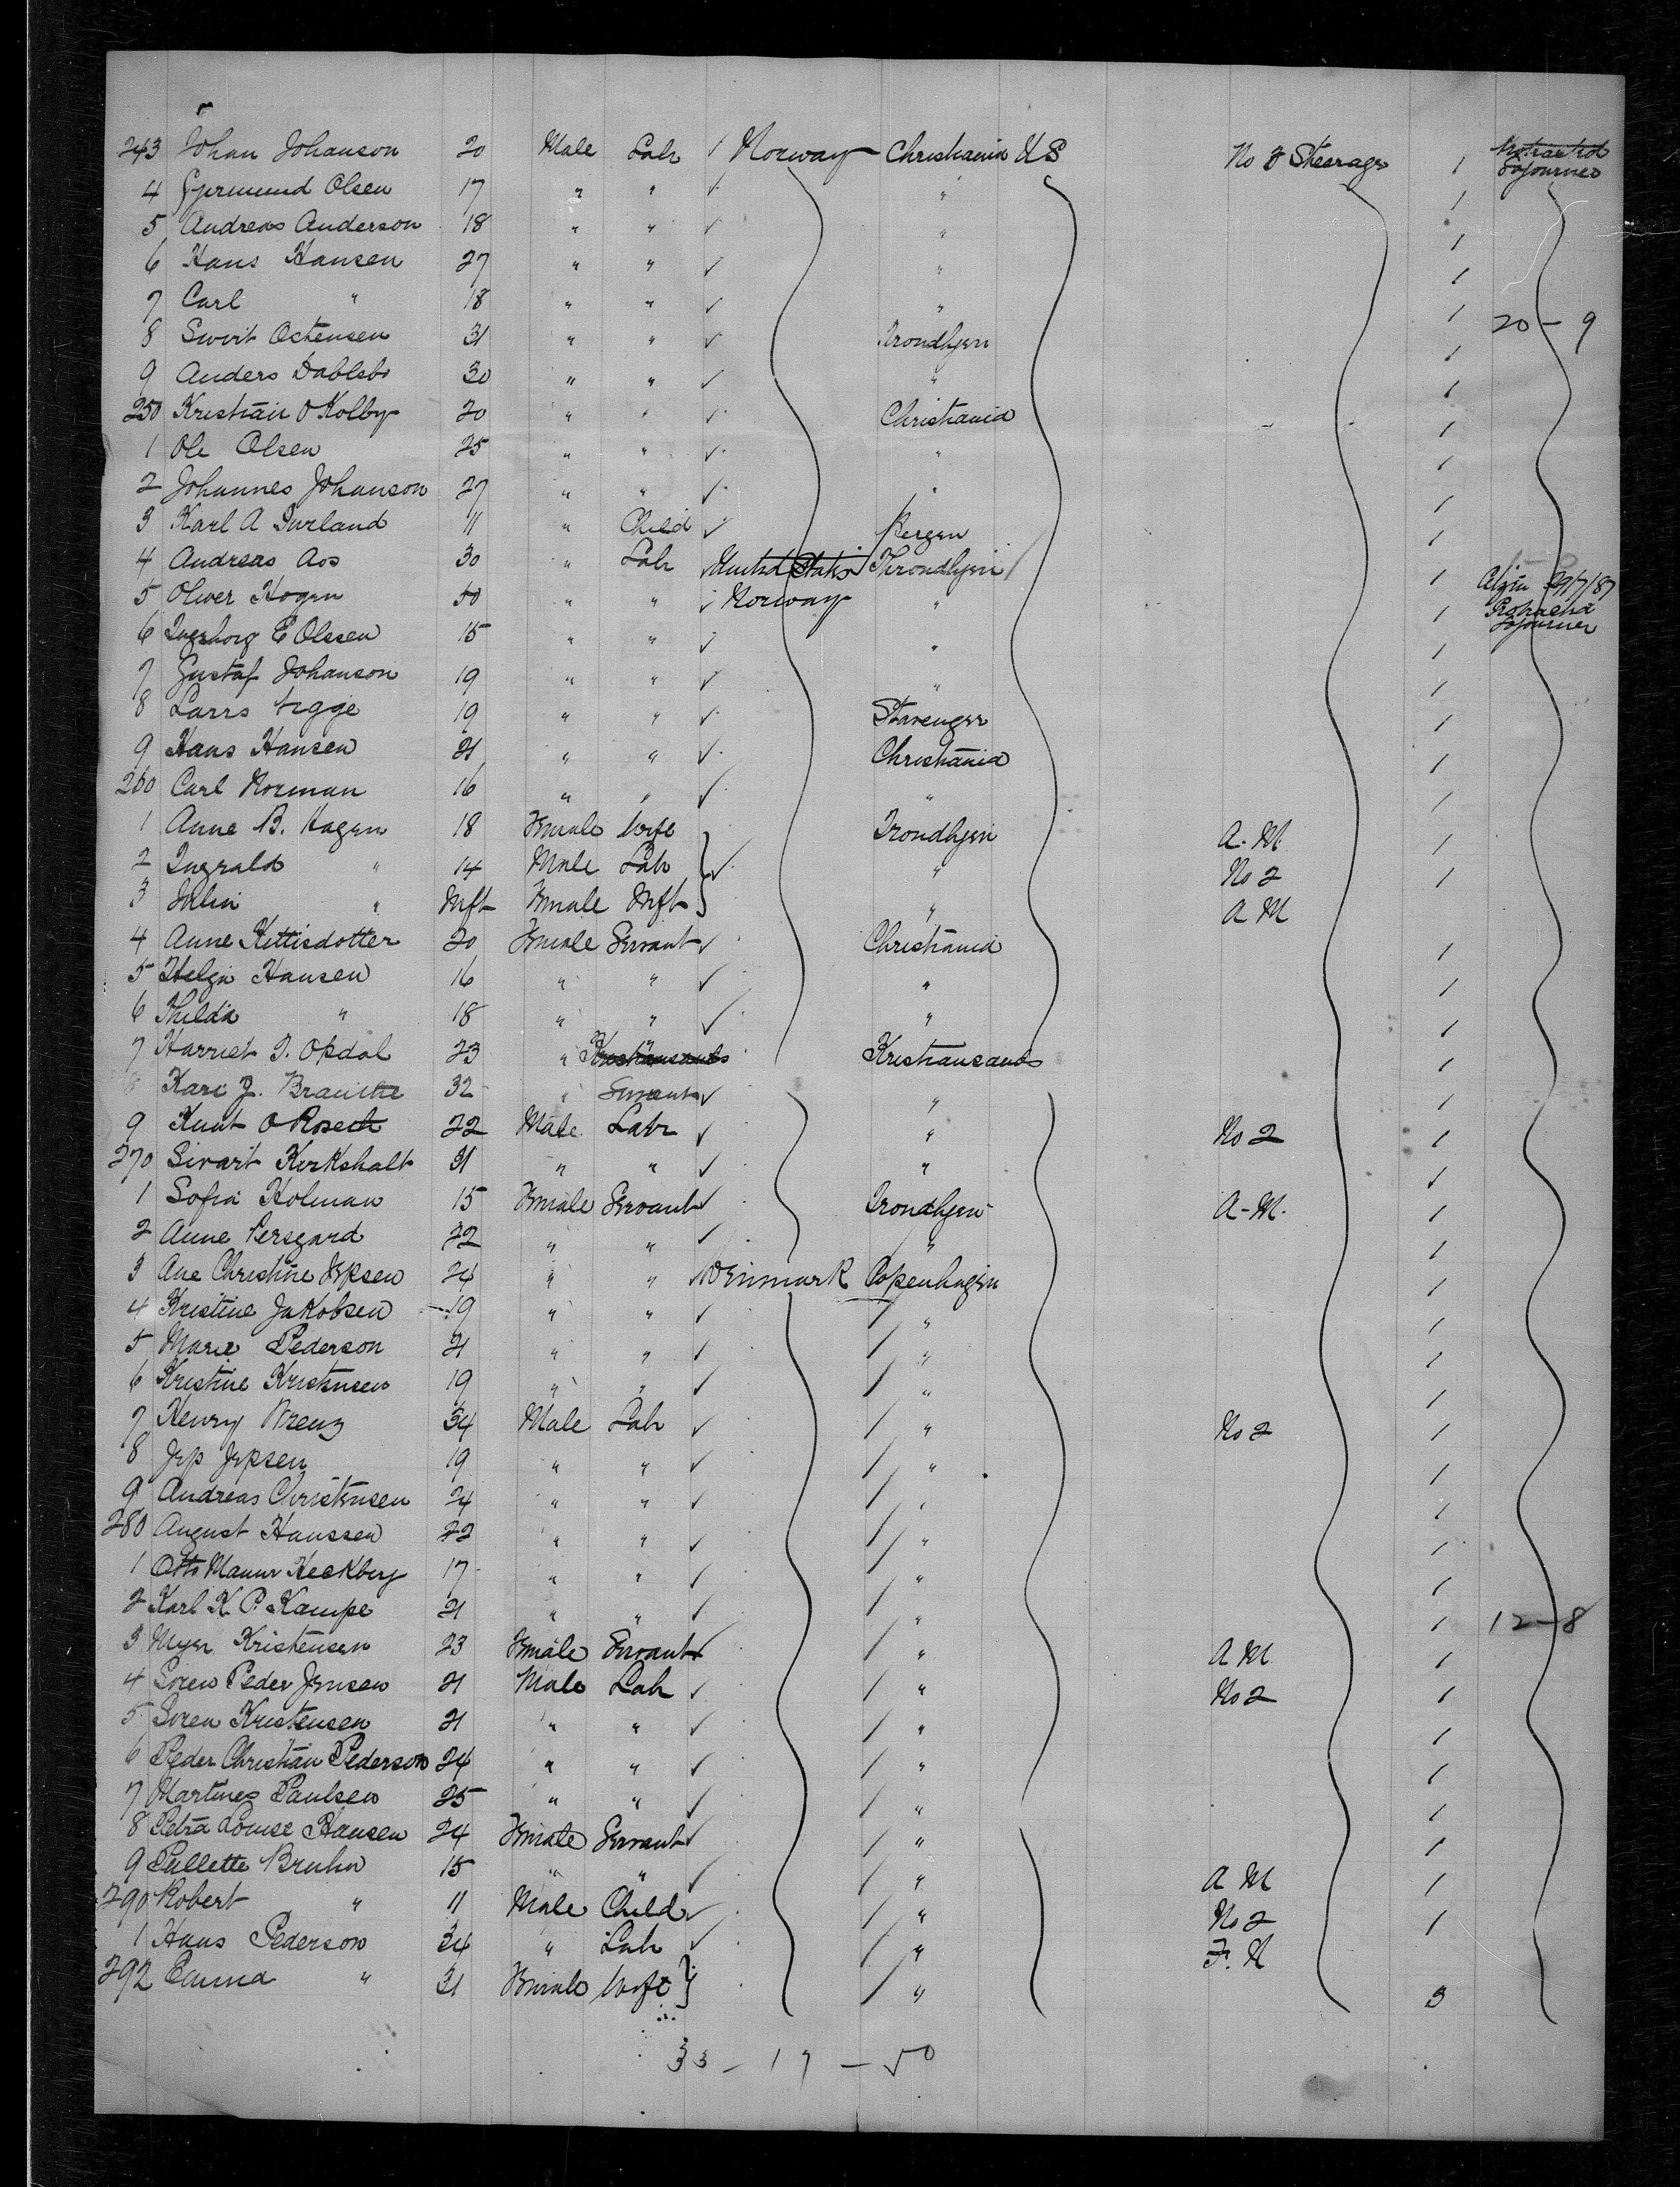 243 Johan Johanson 20 Male Labr Norway Christiania US No 2 Steerage 1 Protracted Sojourner
4 Gjermund Olsen 17 " " "
5 Andreas Anderson 18 " " " 1
6 Hans Hansen 27 " " " 1
7 Carl " 18 " " " 1
8 Sivert Ostensen 31 " " Trondhjem 1 20 - 9
9 Anders Dahlsbo 30 " " " 1
250 Kristian O Kolby 20 " " Christiania 1
1 Ole Olsen 25 " " " 1
2 Johannes Johanson 27 " " " 1
3 Karl A Surland 11 " Child Bergen 1
4 Andreas Aos 30 " Labr United States Throndhjem 1 Citizen 29/7/87
5 Oliver Hogen 50 " " Norway " 1 Protracted Sojourner
6 Ingeborg E Olssen 15 " " " 1
7 Gustaf Johanson 19 " " " 1
8 Larrs Aigge 19 " " Stavenger 1
9 Hans Hansen 21 " " Christiania 1
260 Carl Norman 16 " " " 1
1 Anne B. Hagen 18 Female Wife Trondhjem A. M. 1
2 Ingvald " 14 Male Labr " No 2 1
3 Julia " Inft Female Inft " A M
4 Anne Kittisdotter 20 Female Servant Christiania 1
5 Helga Hansen 16 " " " 1
6 Thilda " 18 " " " 1
7 Harriet T. Opdal 23 " Kristiansands Kristiansands 1
8 Kari J. 32 " Servant " 1
9 Knut O Roseth 22 Male Labr " No 2 1
270 Sivart Kirkshalt 31 " " " 1
1 Sofia Holman 15 Female Servant Trondhjem A-M. 1
2 Anne Persgard 22 " " " 1
3 Ane Christine Jepsen 24 " " Denmark Copenhagen 1
4 Kristine Jakobsen 19 " " " 1
5 Marie Pederson 21 " " " 1
6 Kristine Kristensen 19 " " " 1
7 Henry Wrenz 34 Male Labr " No 2 1
8 Jep Jepsen 19 " " " 1
9 Andreas Christensen 24 " " " 1
280 August Hanssen 22 " " " 1
1 Otto Heckberg 17 " " " 1
2 Karl K. P. Kampe 21 " " " 1 12 - 8
3 Myer Kristensen 23 Female Servant " A M 1
4 Soren Peder Jensen 21 Male Labr " No 2 1
5 Soren Kristensen 21 " " " 1
6 Peder Christian Pederson 24 " " " 1
7 Martines Paulsen 25 " " " 1
8 Petra Louise Hansen 24 Female Servant " 1
9 Pullette Bruhn 15 " " " A M 1
290 Robert " 11 Male Child " No 2 1
1 Hans Pederson 34 " Labr " F. M
292 Emma " 31 Female Wife " 3
33 - 17 - 50